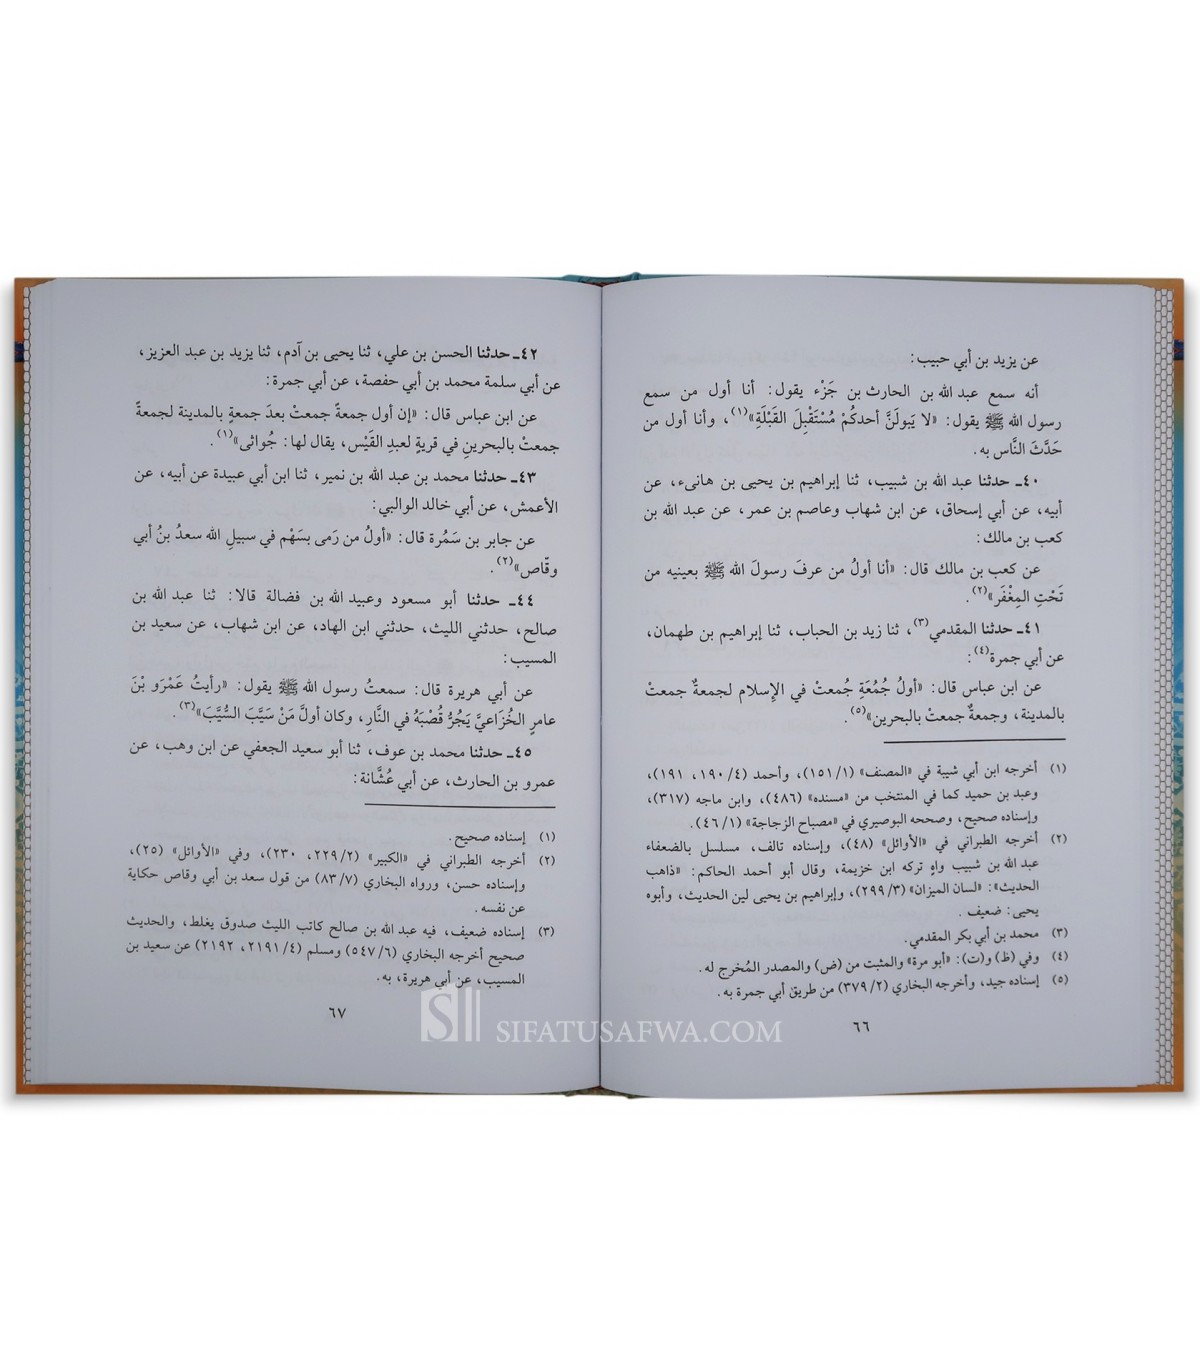 عن يزيد بن أبي حبيب:
أنه سمع عبد الله بن الحارث بن جَزْء يقول: أنا أول من سمع
رسول الله ﷺ يقول: «لا يَبولَنَّ أحدكُمْ مُسْتَقْبِلَ القَبْلَةِ»(١)، وأنا أول من
حَدَّثَ النَّاس به.
٤٠ـ حدثنا عبد الله بن شبيب، ثنا إبراهيم بن يحيى بن هانىء، عن
أبيه، عن أبي إسحاق، عن ابن شهاب وعاصم بن عمر، عن عبد الله بن
كعب بن مالك:
عن كعب بن مالك قال: «أنا أولُ من عرفَ رسولَ الله ﷺ بعينيه من
تَحْتِ المِغْفَر»(٢).
٤١ـ حدثنا المقدمي(٣)، ثنا زيد بن الحباب، ثنا إبراهيم بن طهمان،
عن أبي جمرة(٤):
عن ابن عباس قال: «أولُ جُمُعَةِ جُمعتْ في الإِسلام لجمعةٌ جمعتْ
بالمدينة، وجمعةٌ جمعتْ بالبحرين»(٥).
(١) أخرجه ابن أبي شيبة في «المصنف» (١/ ١٥١)، وأحمد (٤/ ١٩٠، ١٩١)،
وعبد بن حميد كما في المنتخب من «مسنده» (٤٨٦)، وابن ماجه (٣١٧)،
وإسناده صحيح، وصححه البوصيري في «مصباح الزجاجة» (١/ ٤٦).
(٢) أخرجه الطبراني في «الأوائل» (٤٨)، وإسناده تالف، مسلسل بالضعفاء
عبد الله بن شبيب واهٍ تركه ابن خزيمة، وقال أبو أحمد الحاكم: «ذاهب
الحديث»: «لسان الميزان» (٣/ ٢٩٩)، وإبراهيم بن يحيى لين الحديث، وأبوه
يحيى: ضعيف.
(٣) محمد بن أبي بكر المقدمي.
(٤) وفي (ظ) و(ت): «أبو مرة» والمثبت من (ض) والمصدر المُخرج له.
(٥) إسناده جيد، وأخرجه البخاري (٢/ ٣٧٩) من طريق أبي جمرة به.
٦٦
٤٢ـ حدثنا الحسن بن علي، ثنا يحيى بن آدم، ثنا يزيد بن عبد العزيز،
عن أبي سلمة محمد بن أبي حفصة، عن أبي جمرة:
عن ابن عباس قال: «إن أول جمعةً جمعتْ بعدَ جمعةٍ بالمدينة لجمعة
جمعتْ بالبحرينِ في قريةٍ لعبدِ القَيْس، يقال لها: جُواثى»(١).
٤٣ـ حدثنا محمد بن عبد الله بن نمير، ثنا ابن أبي عبيدة عن أبيه، عن
الأعمش، عن أبي خالد الوالبي:
عن جابر بن سَمُرة قال: «أولُ من رَمى بسَهْم في سبيلِ الله سعدُ بنُ أبي
وقّاص»(٢).
٤٤ـ حدثنا أبو مسعود وعبيد الله بن فضالة قالا: ثنا عبد الله بن
صالح، حدثني الليث، حدثني ابن الهاد، عن ابن شهاب، عن سعيد بن
المسيب:
عن أبي هريرة قال: سمعتُ رسول الله ﷺ يقول: «رأيتُ عَمْرَو بْنَ
عامرٍ الخُزَاعيَّ يَجُرُّ قُصْبَهُ في النَّارِ، وكان أولَ مَنْ سَيَّبَ السُّيَّبَ»(٣).
٤٥ـ حدثنا محمد بن عوف، ثنا أبو سعيد الجعفي عن ابن وهب، عن
عمرو بن الحارث، عن أبي عُشَّانة:
(١) إسناده صحيح.
(٢) أخرجه الطبراني في «الكبير» (٢/ ٢٢٩، ٢٣٠)، وفي «الأوائل» (٢٥)،
وإسناده حسن، ورواه البخاري (٧/ ٨٣) من قول سعد بن أبي وقاص حكاية
عن نفسه.
(٣) إسناده ضعيف، فيه عبد الله بن صالح كاتب الليث صدوق يغلط، والحديث
صحيح أخرجه البخاري (٦/ ٥٤٧) ومسلم (٤/ ٢١٩١، ٢١٩٢) عن سعيد بن
المسيب، عن أبي هريرة، به.
٦٧
SIFATUSAFWA.COM